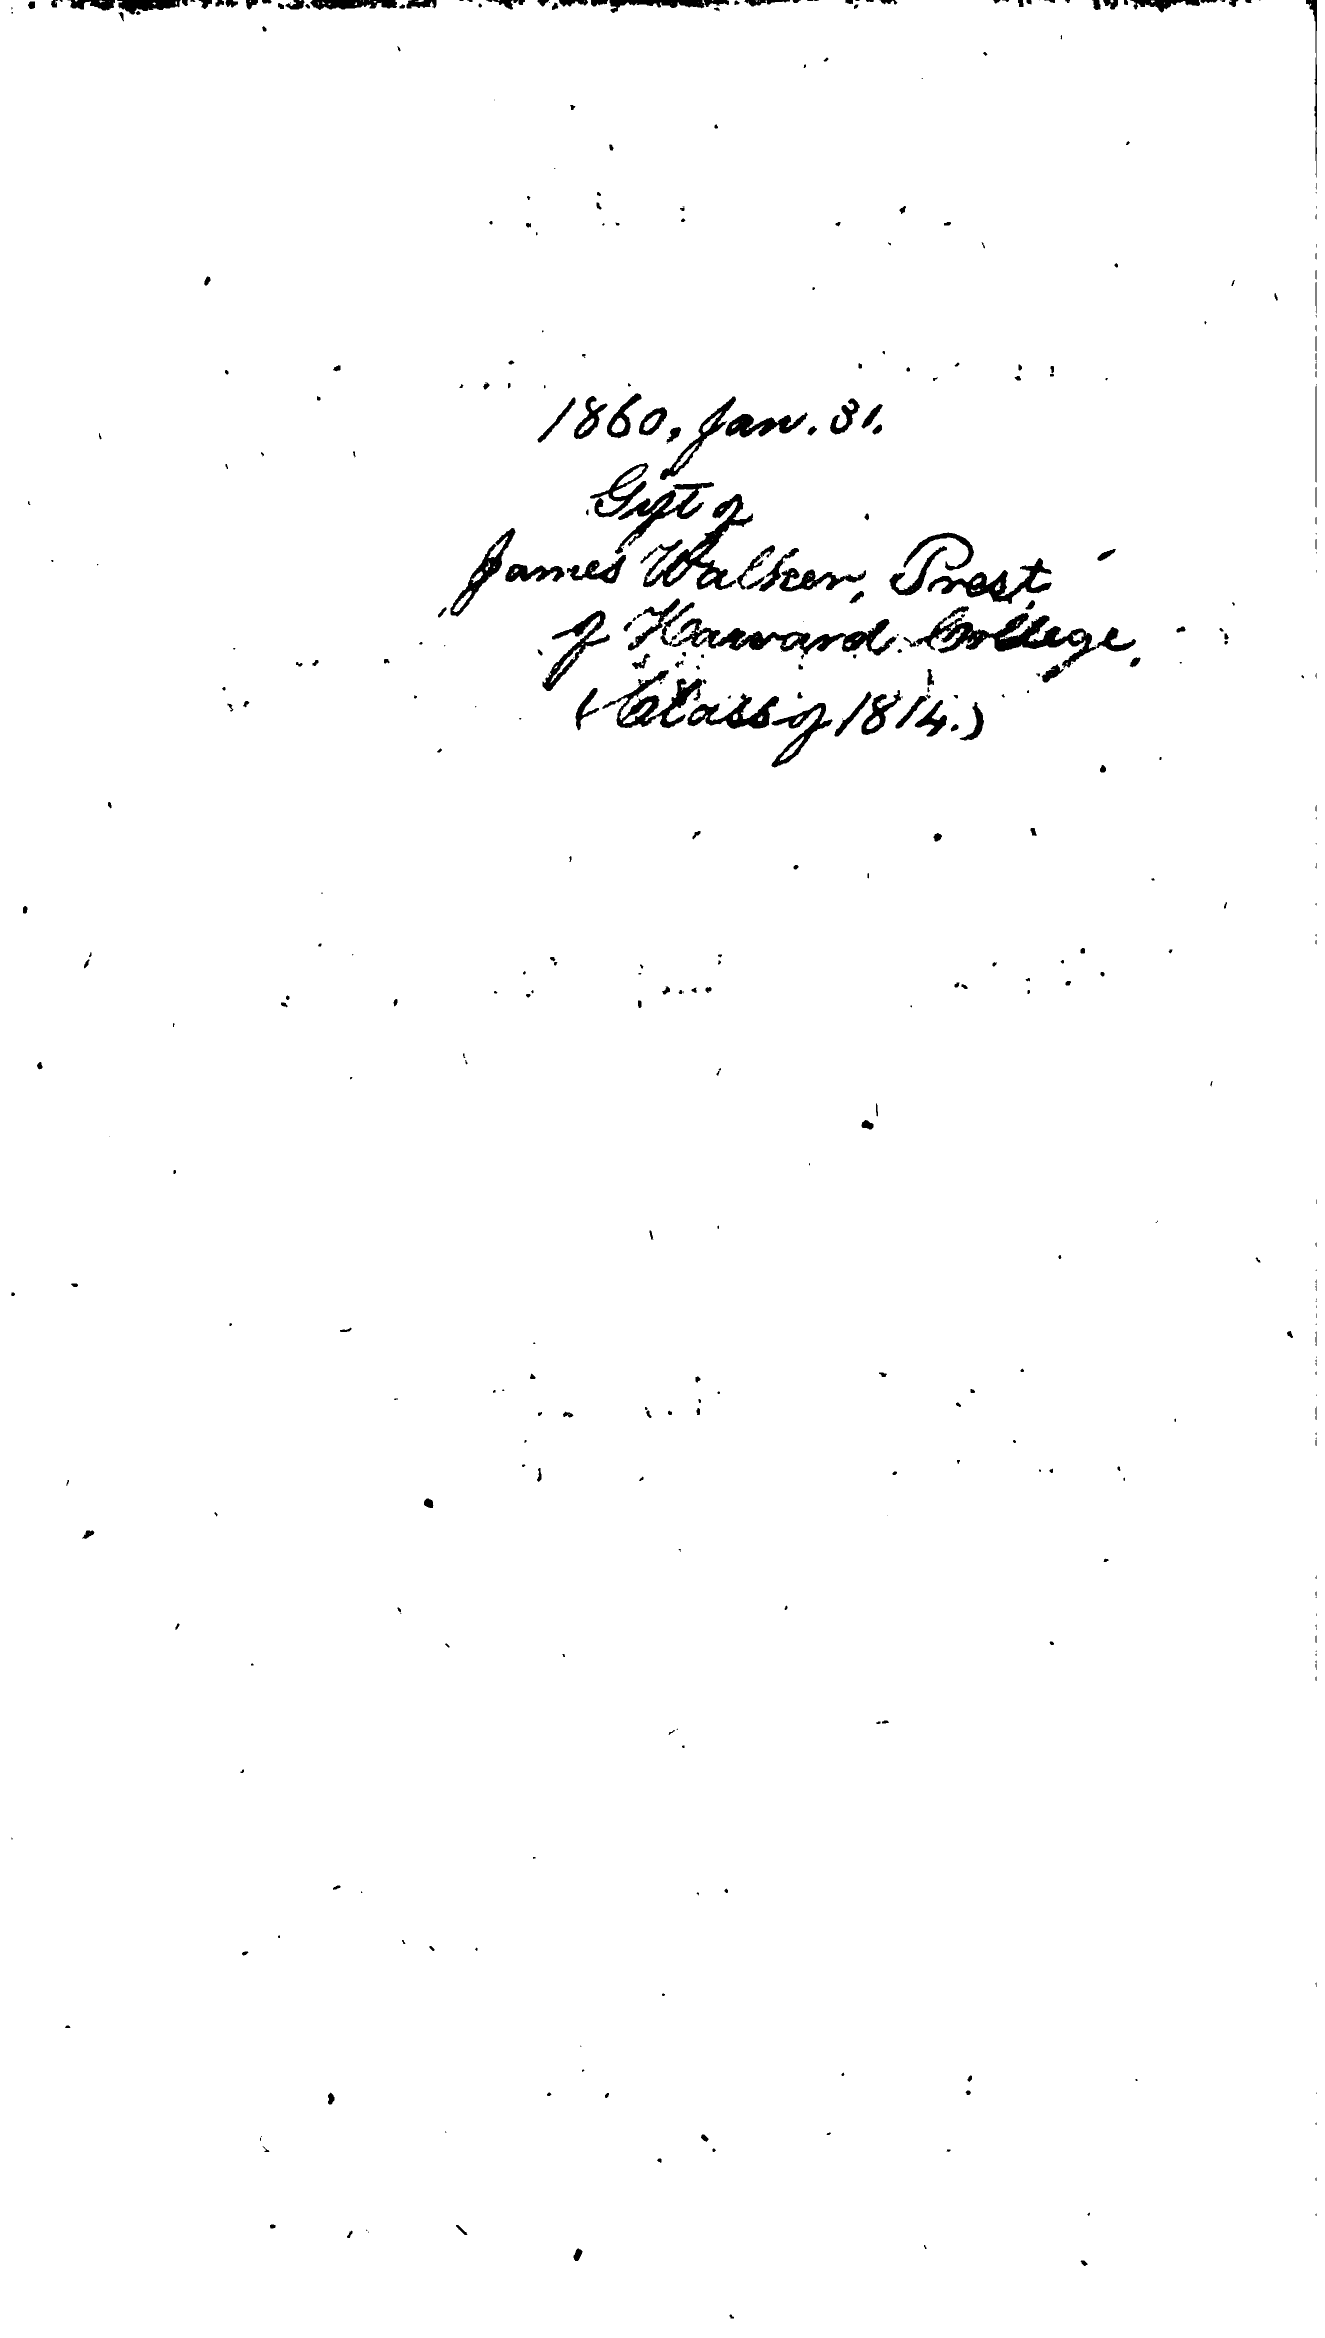 1860, Jan. 31.
Gift of
James Walker, Prest.
of Harvard College.
(Class of 1814.)